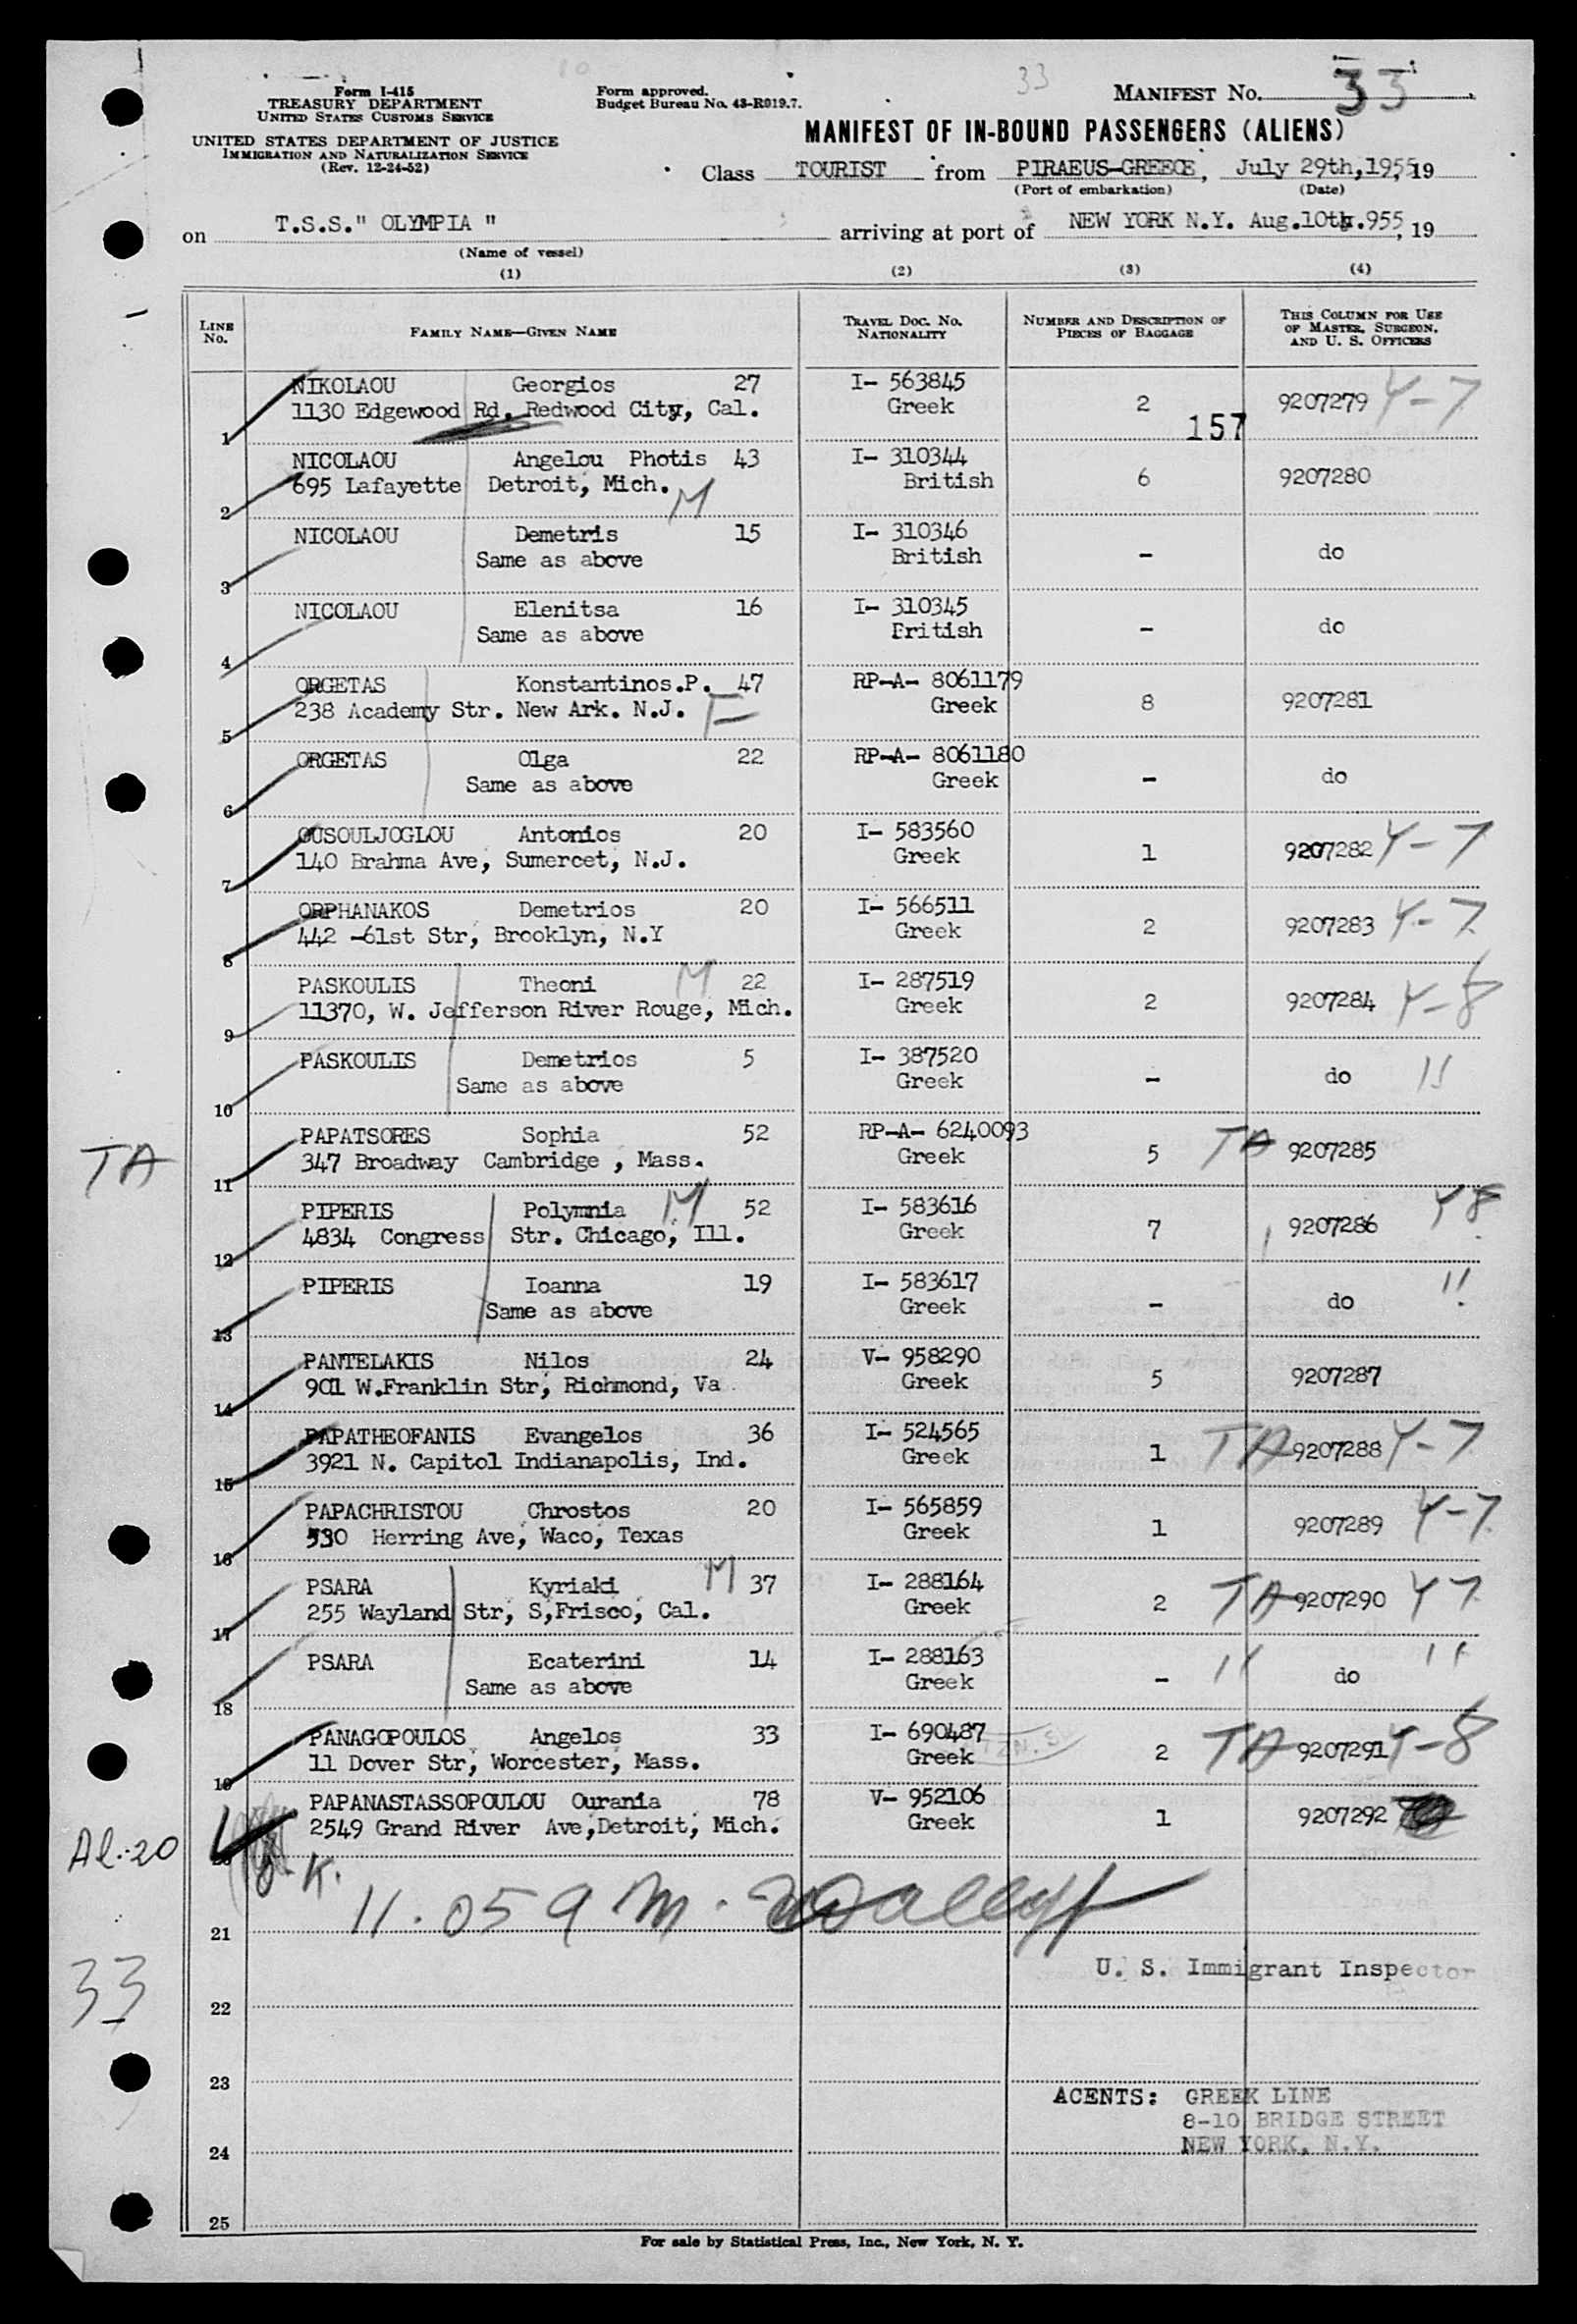 33
Form I-415
TREASURY DEPARTMENT
UNITED STATES CUSTOMS SERVICE
UNITED STATES DEPARTMENT OF JUSTICE
IMMIGRATION AND NATURALIZATION SERVICE
(Rev. 12-24-52)
Form approved.
Budget Bureau No. 43-R019.7.
MANIFEST NO. 33
MANIFEST OF IN-BOUND PASSENGERS (ALIENS)
Class TOURIST from PIRAEUS-GREECE, July 29th,1955, 19
(Port of embarkation) (Date)
on T.S.S." OLYMPIA " arriving at port of NEW YORK N.Y. Aug.10th.955, 19
(Name of vessel)
(1) (2) (3) (4)
LINE NO. FAMILY NAME—GIVEN NAME TRAVEL DOC. NO. NATIONALITY NUMBER AND DESCRIPTION OF PIECES OF BAGGAGE THIS COLUMN FOR USE OF MASTER, SURGEON, AND U. S. OFFICERS
NIKOLAOU Georgios 27 I- 563845
1130 Edgewood Rd. Redwood City, Cal. Greek 2 9207279 Y-7
1 157
NICOLAOU Angelou Photis 43 I- 310344
695 Lafayette Detroit, Mich. M British 6 9207280
2
NICOLAOU Demetris 15 I- 310346
Same as above British - do
3
NICOLAOU Elenitsa 16 I- 310345
Same as above British - do
4
ORGETAS Konstantinos.P. 47 RP-A- 8061179
238 Academy Str. New Ark. N.J. F Greek 8 9207281
5
ORGETAS Olga 22 RP-A- 8061180
Same as above Greek - do
6
OUSOULJOGLOU Antonios 20 I- 583560
140 Brahma Ave, Sumercet, N.J. Greek 1 9207282 Y-7
7
ORPHANAKOS Demetrios 20 I- 566511
442 -61st Str, Brooklyn, N.Y Greek 2 9207283 Y-7
8
PASKOULIS Theoni M 22 I- 287519
11370, W. Jefferson River Rouge, Mich. Greek 2 9207284 Y-8
9
PASKOULIS Demetrios 5 I- 387520
Same as above Greek - do 11
10
PAPATSORES Sophia 52 RP-A- 6240093
TA 347 Broadway Cambridge , Mass. Greek 5 TA 9207285
11
PIPERIS Polymnia M 52 I- 583616
4834 Congress Str. Chicago, Ill. Greek 7 9207286 Y8
12
PIPERIS Ioanna 19 I- 583617
Same as above Greek - do 11
13
PANTELAKIS Nilos 24 V- 958290
901 W.Franklin Str, Richmond, Va Greek 5 9207287
14
PAPATHEOFANIS Evangelos 36 I- 524565
3921 N. Capitol Indianapolis, Ind. Greek 1 TA 9207288 Y-7
15
PAPACHRISTOU Chrostos 20 I- 565859
530 Herring Ave, Waco, Texas Greek 1 9207289 Y-7
16
PSARA Kyriaki M 37 I- 288164
255 Wayland Str, S,Frisco, Cal. Greek 2 TA 9207290 Y7
17
PSARA Ecaterini 14 I- 288163
Same as above Greek - 11 do 11
18
PANAGOPOULOS Angelos 33 I- 690487
11 Dover Str, Worcester, Mass. Greek 2 TA 9207291 Y-8
19
PAPANASTASSOPOULOU Ourania 78 V- 952106
2549 Grand River Ave,Detroit, Mich. Greek 1 9207292
Al.-20 20
O.K.
11.05 a m.
21
U. S. Immigrant Inspector
33
22
23
ACENTS: GREEK LINE
8-10 BRIDGE STREET
24 NEW YORK, N.Y.
25
For sale by Statistical Press, Inc., New York, N. Y.